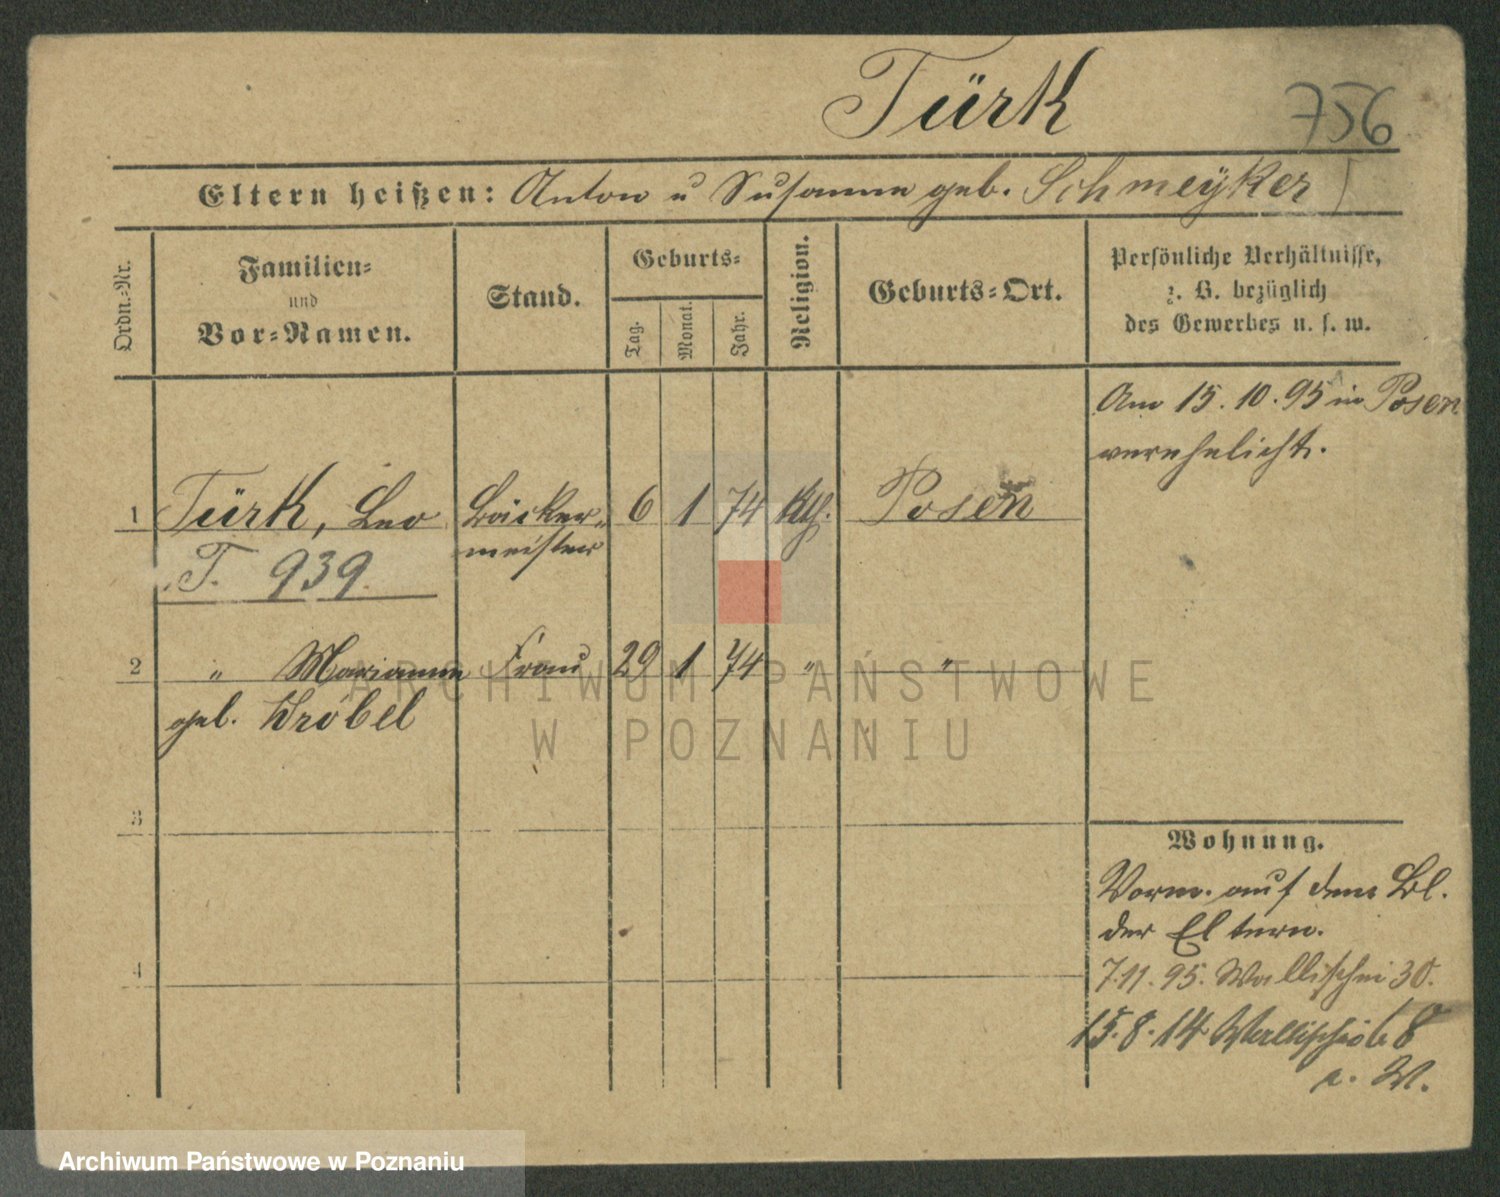 Türk
756
Eltern heißen: Anton u Susanna geb. Schmeyker
Ordn.-Nr.
Familien-
und
Vor-Namen.
Stand.
Geburts-
Tag.
Monat.
Jahr.
Religion.
Geburts-Ort.
Persönliche Verhältnisse,
z. B. bezüglich
des Gewerbes u. s. w.
Am 15.10.95 in Posen
verehelicht.
1 Türk, Leo Bäcker- 6 1 74 kth. Posen
meister
T. 939
2 " Marianna Frau 29 1 74 " "
geb. Wróbel
3
4
Wohnung.
Vorm. auf dem Bl.
der Eltern.
7.11.95. Wallischei 30.
15.8.14 Wallischei
W.
ARCHIWUM PAŃSTWOWE
W POZNANIU
Archiwum Państwowe w Poznaniu